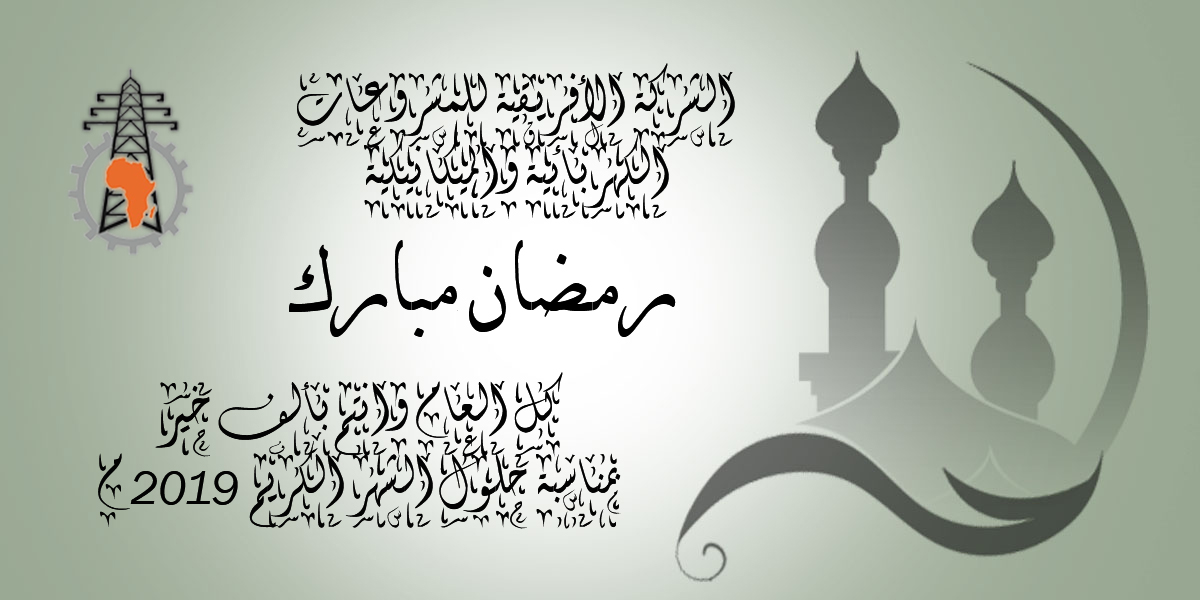 الشركة الأفريقية للمشروعات
الكهربائية والميكانيكية
رمضان مبارك
كل العام وانتم بألف خير
بمناسبة حلول الشهر الكريم 2019م